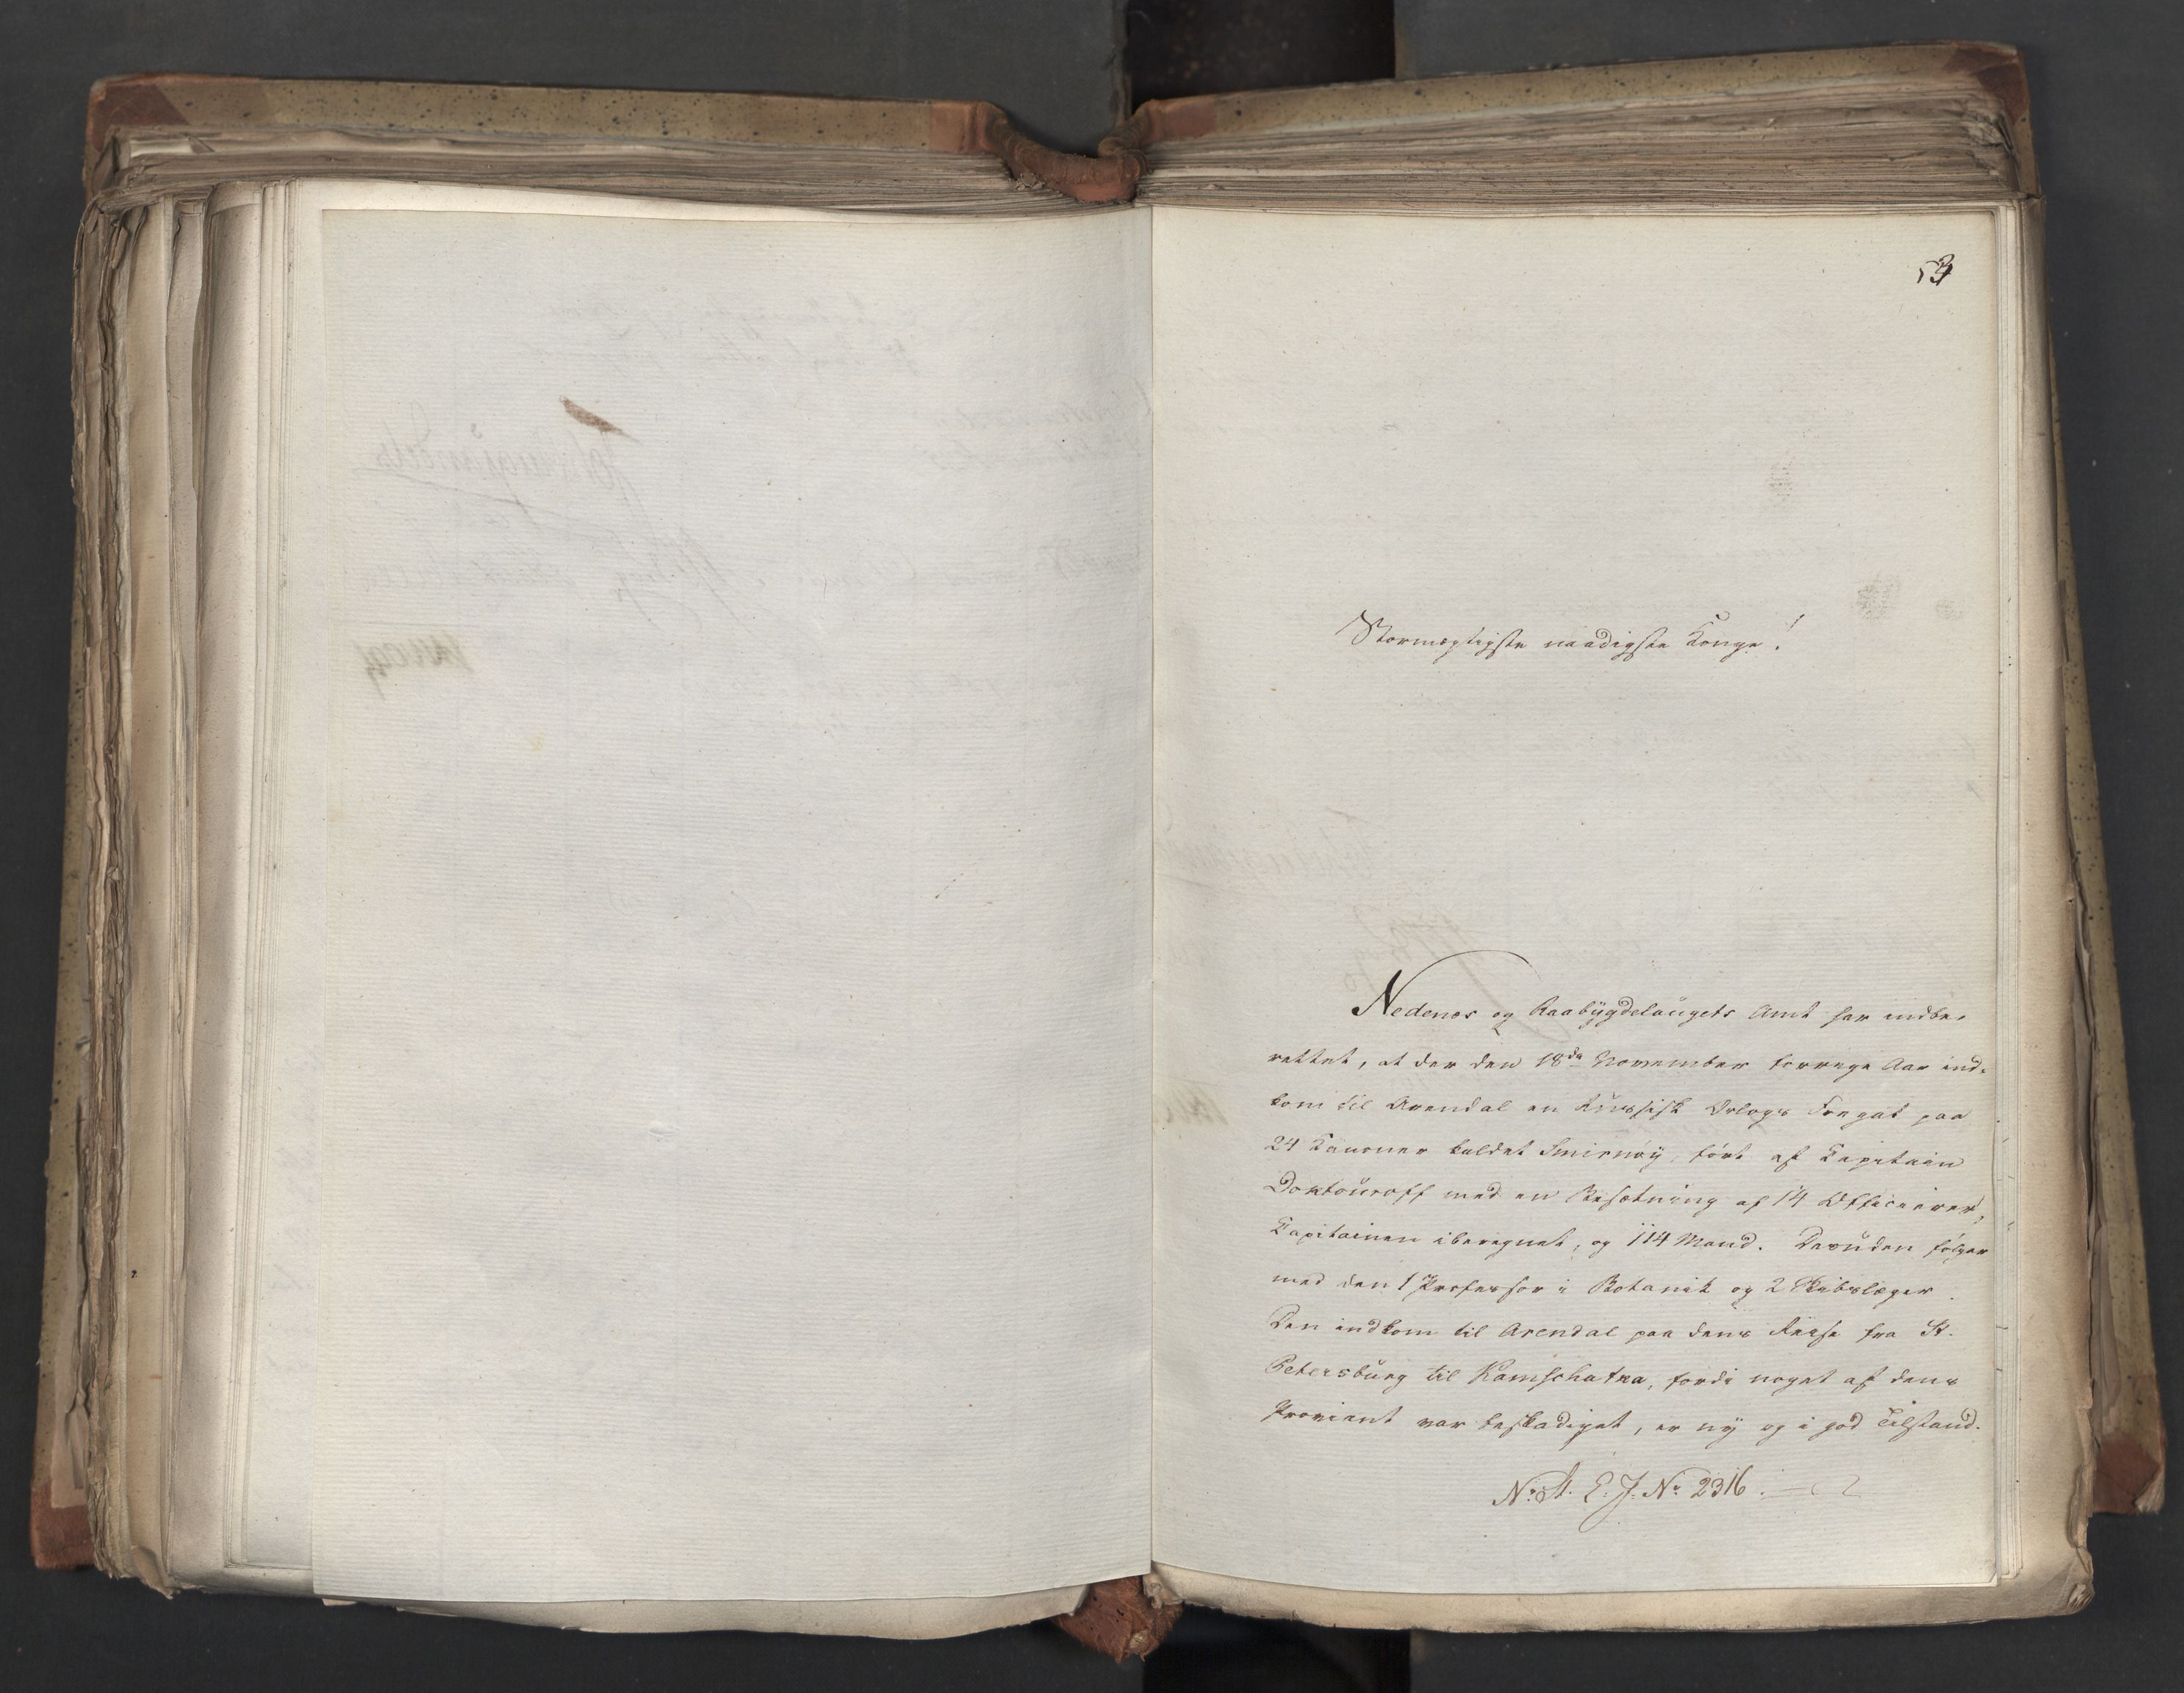 53
Stormægtigste naadigste Konge!
Nedenæs og Raabÿgdelaugets Amt har indbe-
rettet, at der den 18de November forrige Aar ind-
kom til Arendal en Russisk Orlogs Fregat paa
24 Kanoner kaldet Smirnöÿ, fört af Kapitain
Doktouroff med en Besætning af 14 Officierer,
Kapitainen iberegnet, og 114 Mand. Desuden fölger
med den 1 Professor i Botanik og 2 Skibslæger.
Den indkom til Arendal paa dens Reise fra St.
Petersburg til Kamschatka, fordi noget af dens
Proviant var beskadiget, er nÿ og i god Tilstand.
N: A. E. J. No 2316.